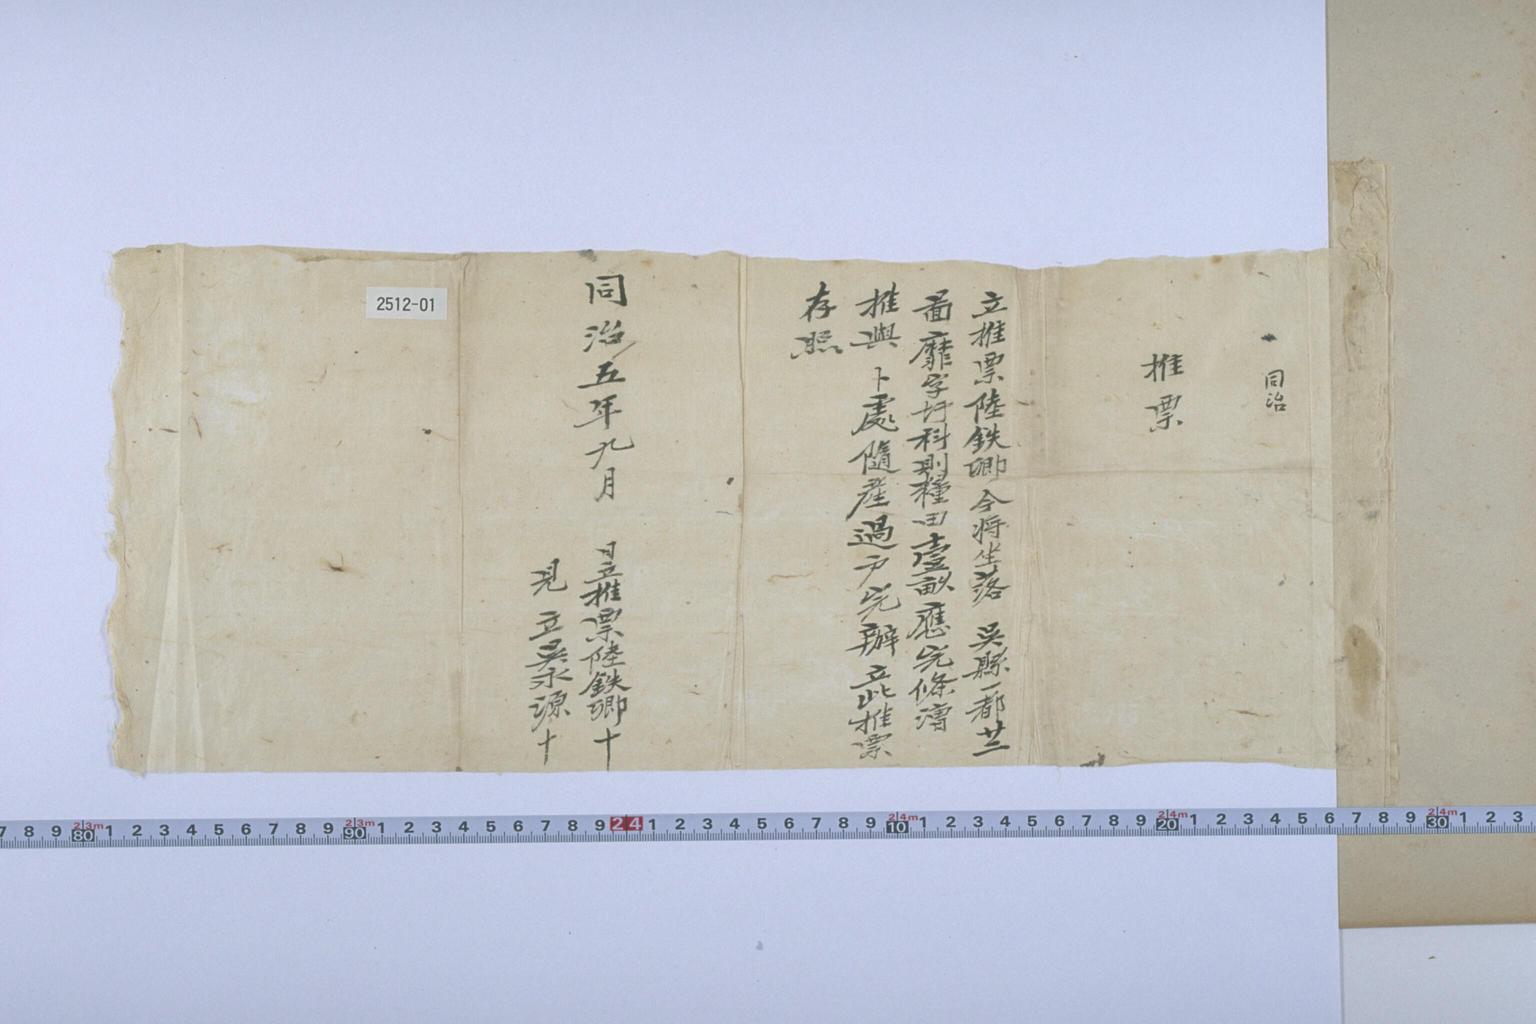 同治
推票
立推票陸鉄卿今將坐落 吳縣一都廿二
啚靡字圩科則糧田壹畝應完條漕
推與 卜處隨產過户完辦立此推票
存照
同治五年九月 日立推票陸鉄卿十
見立吳永源十
2512-01
7 8 9 80 1 2 3 4 5 6 7 8 9 90 1 2 3 4 5 6 7 8 9 24 1 2 3 4 5 6 7 8 9 10 1 2 3 4 5 6 7 8 9 20 1 2 3 4 5 6 7 8 9 30 1 2 3